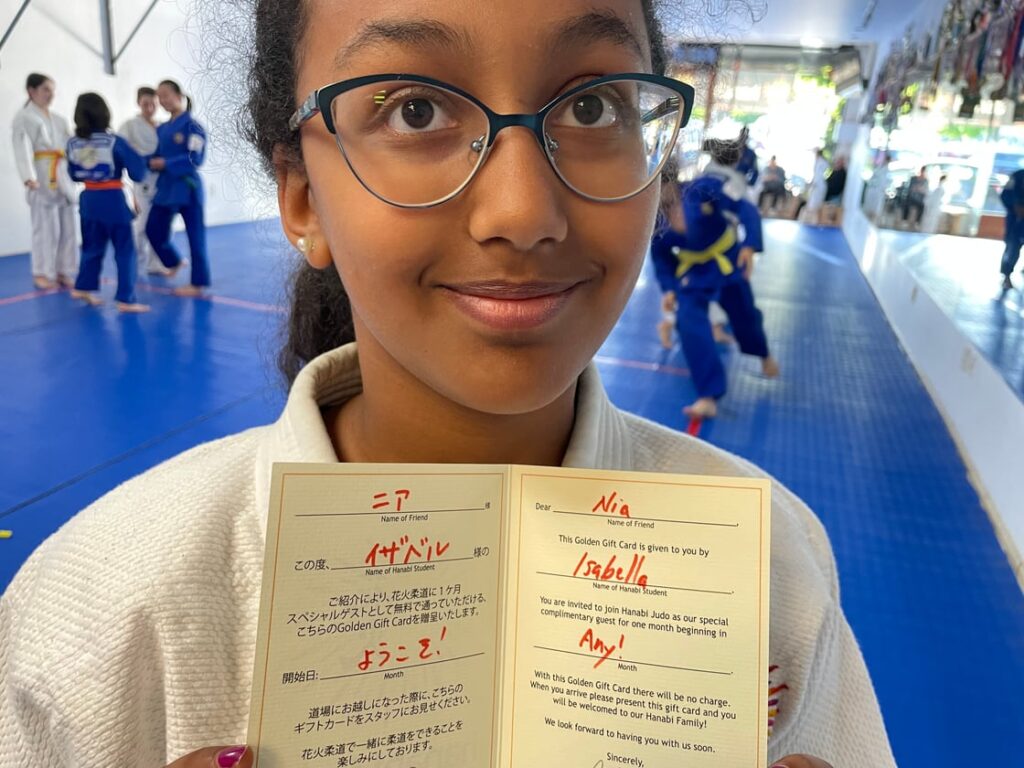 ニア 様
Name of Friend
この度、イザベル 様の
Name of Hanabi Student
ご紹介により、花火柔道に1ケ月
スペシャルゲストとして無料で通っていただける、
こちらのGolden Gift Cardを贈呈いたします。
開始日: ようこそ!
Month
道場にお越しになった際に、こちらの
ギフトカードをスタッフにお見せください。
花火柔道で一緒に柔道をできることを
楽しみにしております。
Dear Nia,
Name of Friend
This Golden Gift Card is given to you by
Isabella.
Name of Hanabi Student
You are invited to join Hanabi Judo as our special
complimentary guest for one month beginning in
Any!.
Month
With this Golden Gift Card there will be no charge.
When you arrive please present this gift card and you
will be welcomed to our Hanabi Family!
We look forward to having you with us soon.
Sincerely,